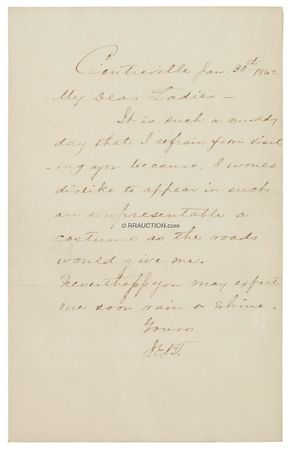 Centreville Jan. 30th 1862
My Dear Ladies –
It is such a muddy
day that I refrain from visit
ing you because, I would
dislike to appear in such
an unpresentable a
costume as the roads
would give me.
© RRAUCTION.com
Neverthelss you may expect
me soon rain or shine.
Yours
J.E.B.